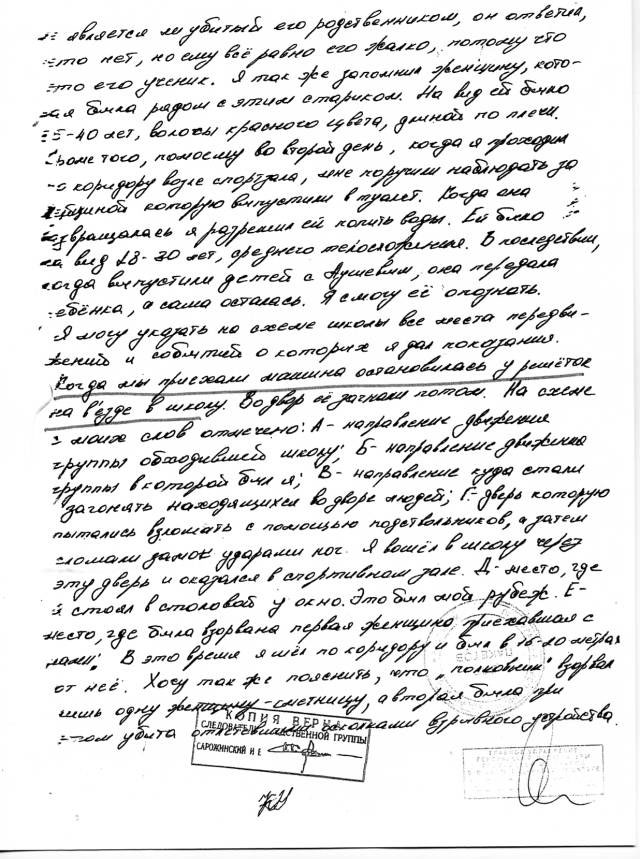 является ли убитый его родственником, он ответил,
что нет, но ему всё равно его жалко, потому что
это его ученик. Я так же запомнил женщину, кото-
ая была рядом с этим стариком. На вид ей было
35-40 лет, волосы красного цвета, длиной по плечи.
Кроме того, помоему во второй день, когда я проходил
по коридору возле спортзала, мне поручили наблюдать за
которую выпустили в туалет. Когда она
возвращалась я разрешил ей попить воды. Ей было
на вид 28-30 лет, среднего телосложения. В последствии,
когда выпустили детей с Аушевым, она передала
ребёнка, а сама осталась. Я смогу её опознать.
Я могу указать на схеме школы все места передви-
жений и событий о которых я дал показания.
Когда мы приехали машина остановилась у решёток
на въезде в школу. Во двор её загнали потом. На схеме
с моих слов отмечено: А- направление движения
группы обходившей школу; Б- направление движения
группы в которой был я; В- направление куда стали
загонять находящихся во дворе людей; Г- дверь которую
пытались взломать с помощью подствольников, а затем
сломали замок ударами ног. Я вошёл в школу через
эту дверь и оказался в спортивном зале. Д- место, где
я стоял в столовой у окна. Это был мой рубеж. Е-
место, где была взорвана первая женщина приехавшая с
нами. В это время я шёл по коридору и был в 15-20 метрах
от неё. Хочу так же пояснить, что "полковник" взорвал
лишь одну женщину-смертницу, а вторая была при
этом убита осколками взрывного устройства.
КОПИЯ ВЕРНА
СЛЕДОВАТЕЛЬ СЛЕДСТВЕННОЙ ГРУППЫ
САРОЖИНСКИЙ И Е